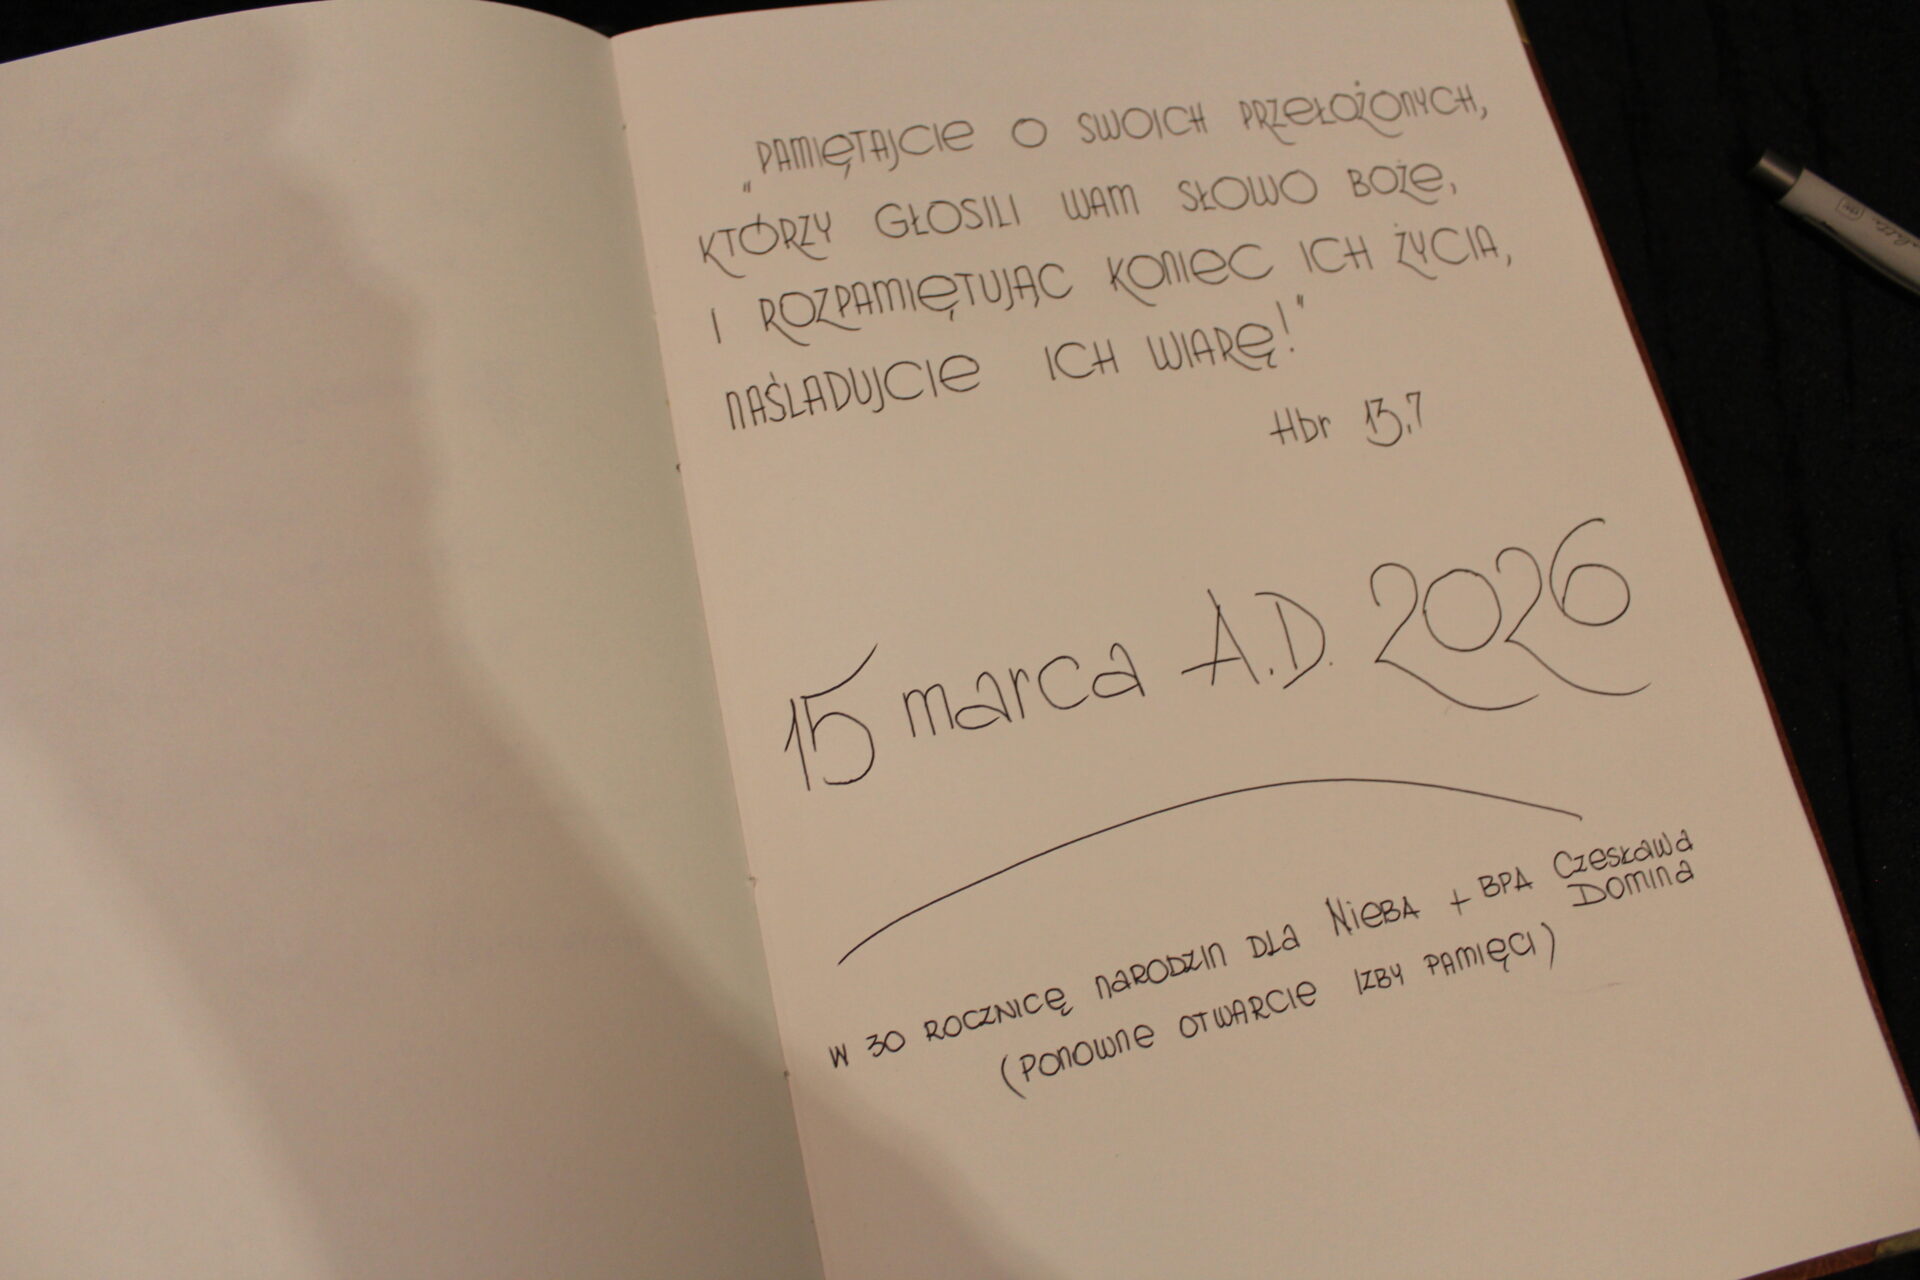 „PAMIĘTAJCIE O SWOICH PRZEŁOŻONYCH,
KTÓRZY GŁOSILI WAM SŁOWO BOŻE,
I ROZPAMIĘTUJĄC KONIEC ICH ŻYCIA,
NAŚLADUJCIE ICH WIARĘ!"
Hbr 13,7
15 marca A.D. 2026
W 30 ROCZNICĘ NARODZIN DLA NIEBA + BPA CZESŁAWA
DOMINA
(PONOWNE OTWARCIE IZBY PAMIĘCI)